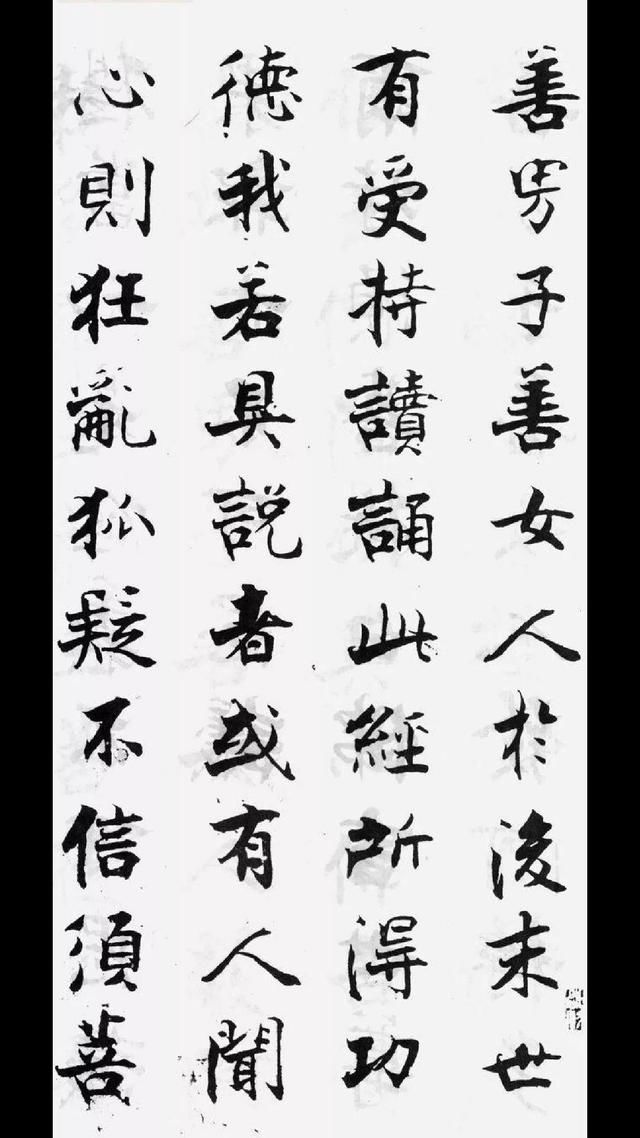 善男子善女人於後末世
有受持讀誦此經所得功
德我若具說者或有人聞
心則狂亂狐疑不信須菩